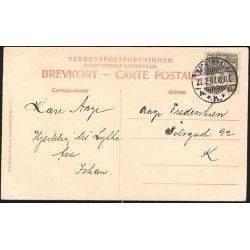 VERDENSPOSTFORENINGEN
(UNION POSTALE UNIVERSELLE)
BREVKORT – CARTE POSTALE
Correspondance
Adresse
Kære Aage
Hjertelig til Lykke
fra
Johan.
Aage Fredericksen
Sølvgade 92
K